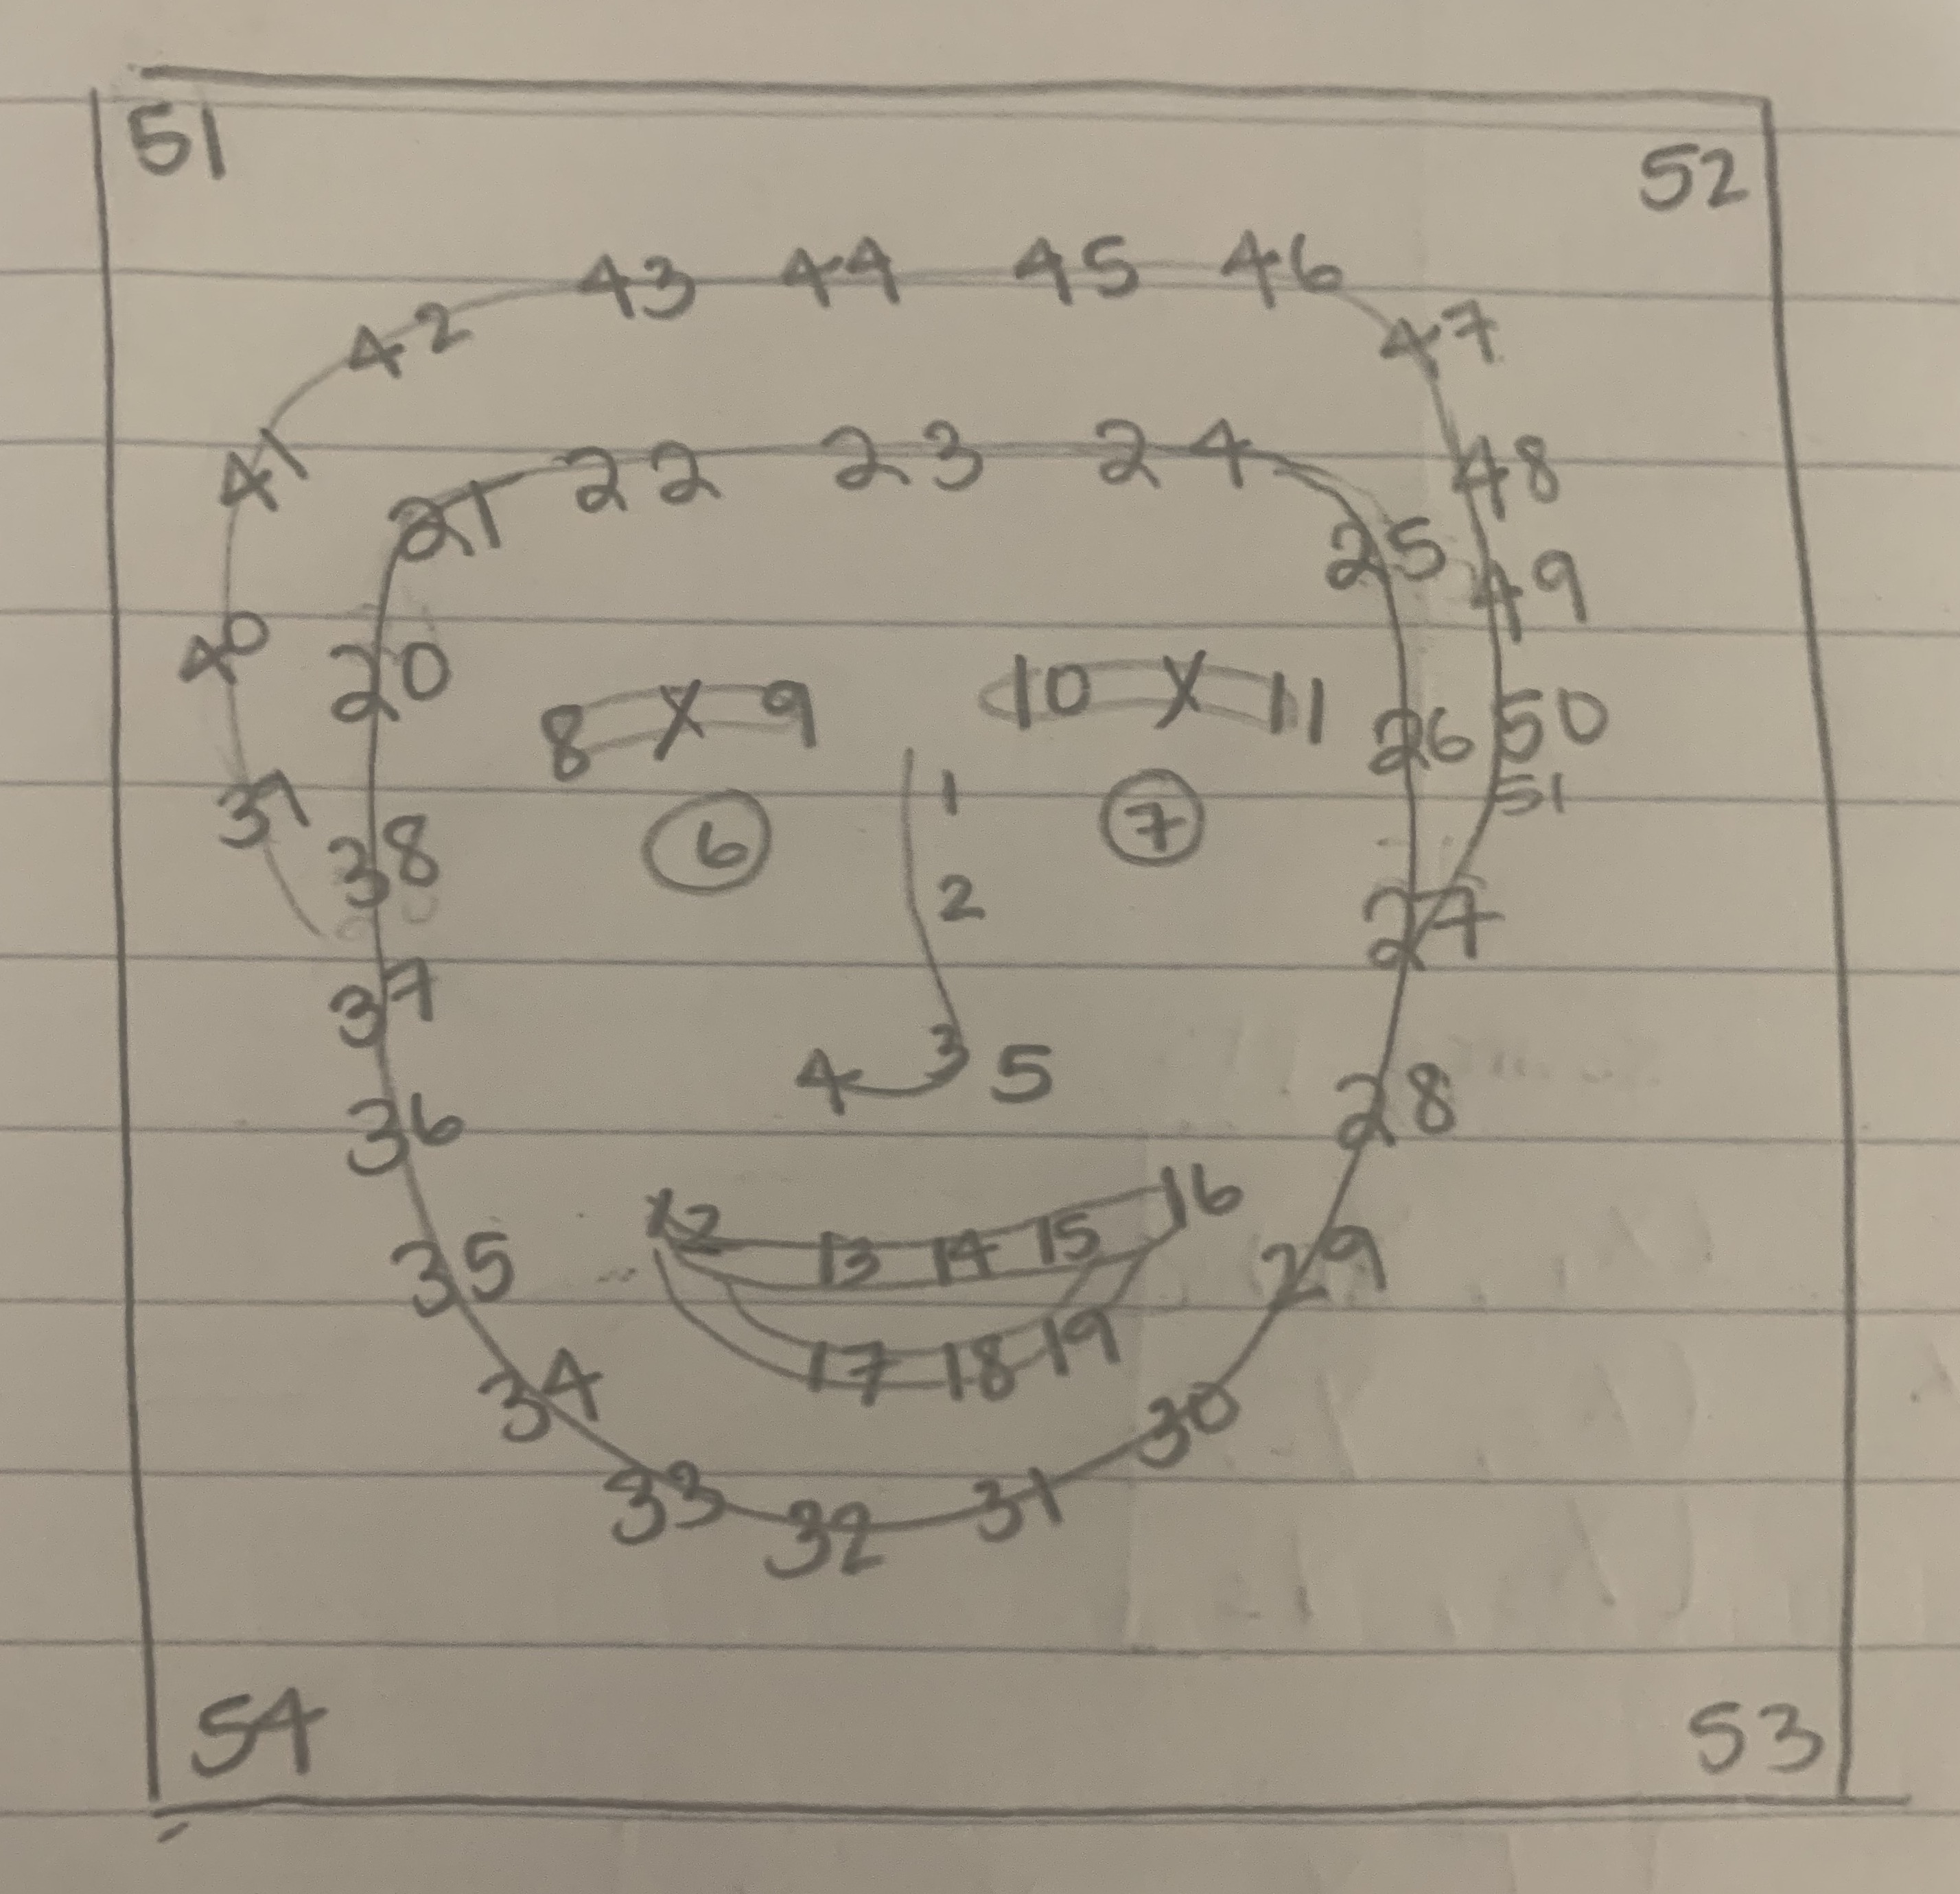 51
52
43 44 45 46
42 47
41 22 23 24 48
21 25 49
40 20 8 X 9 10 X 11 26 50
39 6 1 7 51
38 2 27
37
4 3 5 28
36
12 16
35 13 14 15 29
34 17 18 19 30
33 32 31
54 53